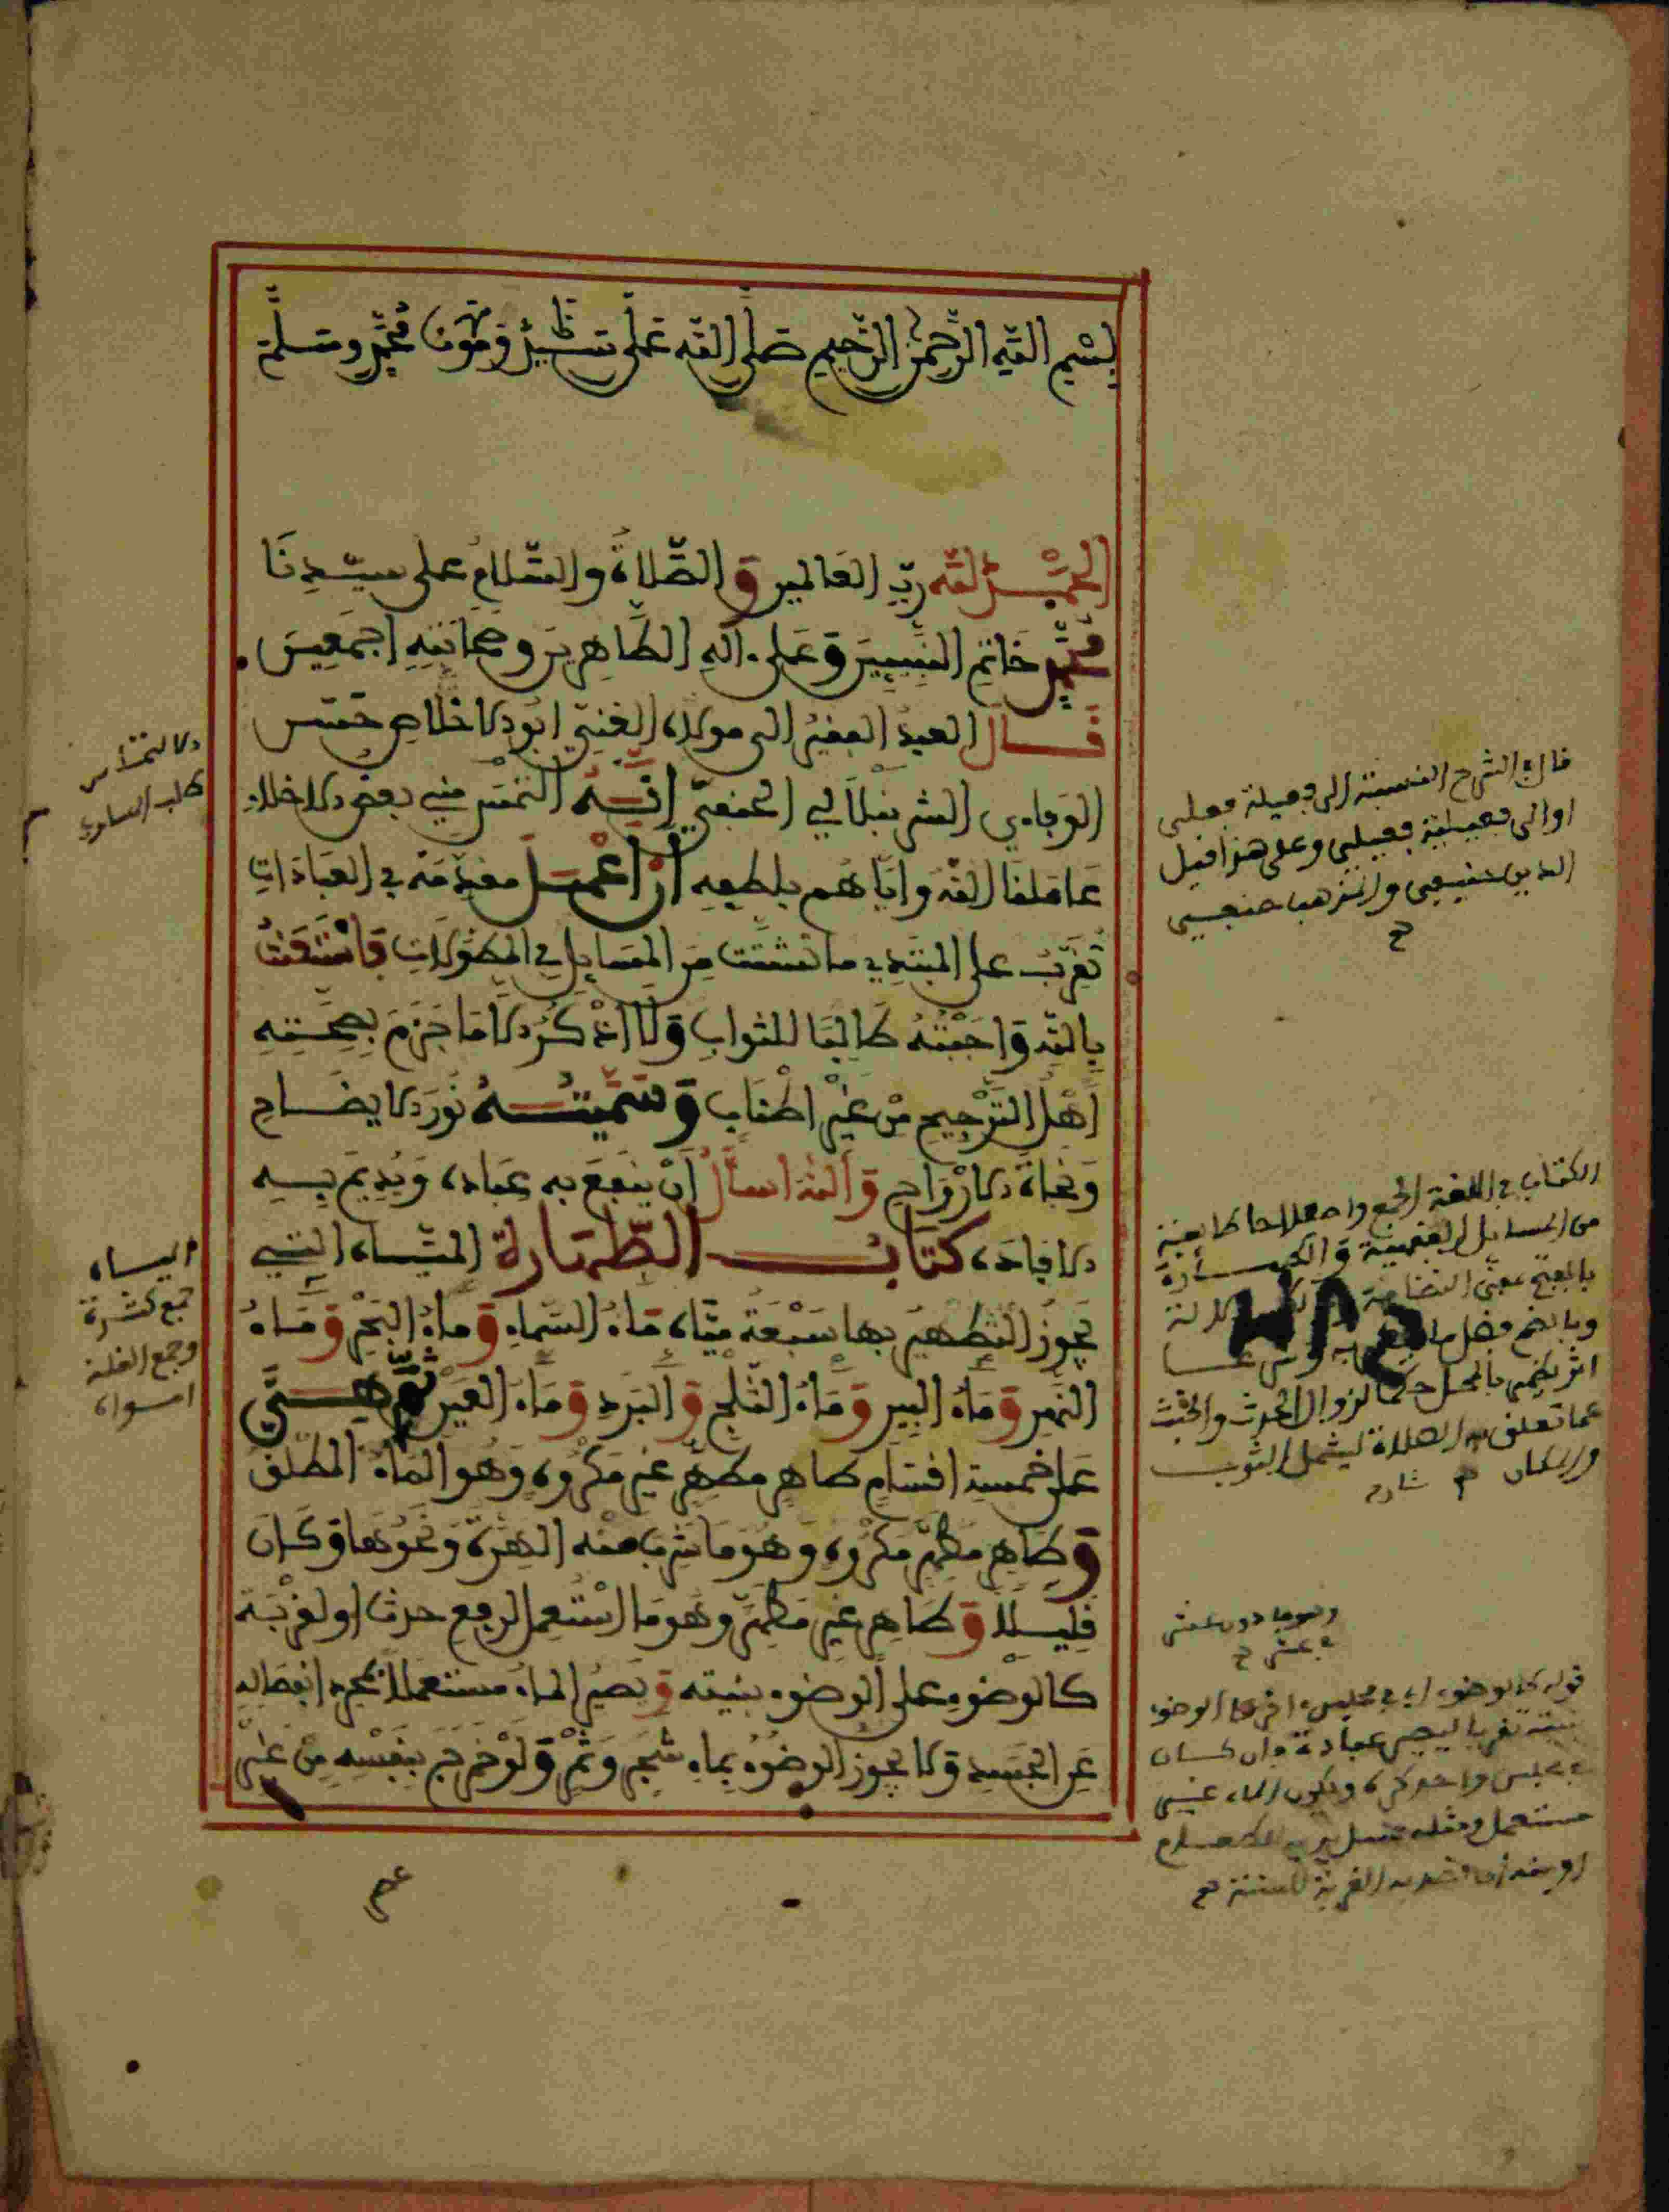 بسم الله الرحمن الرحيم صلى الله على سيدنا ومولانا محمد وسلم
الحمد لله رب العالمين والصلاة والسلام على سيدنا
محمد خاتم النبيين وعلى ءاله الطاهرين وصحابته اجمعين
قال العبد الفقير الى مولاه الغني ابو الاخلاص حسن
الوفاءي الشرنبلالي الحنفي إنه التمس مني بعض الاخلاء
عاملنا الله واياهم بلطفه أن أعمل مقدمة في العبادات
تقرب على المبتدي ما تشتت من المسايل في المطولات فاستعنت
بالله واجبته طالبا للثواب ولا اذكر الا ما جزم بصحته
أهل الترجيح من غير اطناب وسميته نور الايضاح
ونجاة الارواح والله اسأل أن ينفع به عباده ويديم به
الافاده كتاب الطهارة المياه التي
يجوز التطهير بها سبعة مياه ماء السماء وماء البحر وماء
النهر وماء البير وماء الثلج والبرد وماء العين ثم هي
على خمسة اقسام طاهر مطهر غير مكروه وهو الماء المطلق
وطاهر مطهر مكروه وهو ما شرب منه الهرة ونحوها وكان
قليلا وطاهر غير مطهر وهو ما استعمل لرفع حدث او لقربة
كالوضوء على الوضوء بنيته ويصير الماء مستعملا بمجرد انفصاله
عن الجسد ولا يجوز الوضوء بماء شجر وثمر ولو خرج بنفسه من غير
الالتماس
طلب المساوي
قال في الشرح النسبة الى فعيلة فعلي
او الى فعيلة فعيلي وعلى هذا قيل
في الدين حنيفي والمذهب حنفي
ح
الكتاب في اللغة الجمع واصطلاحا طايفة
من المسايل الفقهية والطهارة
بالفتح بمعنى النظافة
وبالضم فضل ما
اثر يظهر بالمحل حكما لزوال الحدث والخبث
عما تعلق به الصلاة ليشمل الثوب
والمكان شارح
المياه
جمع كثرة
وجمع القلة
امواه
وهو ما دون عشر
في عشر ح
قوله كالوضوء اي في مجلس اخر على الوضوء
بنيته تقربا ليصير عبادة فان كان
في مجلس واحد كره ويكون الماء غير
مستعمل ومثله غسل يديه للطعام
او منه القربة للسنة ح